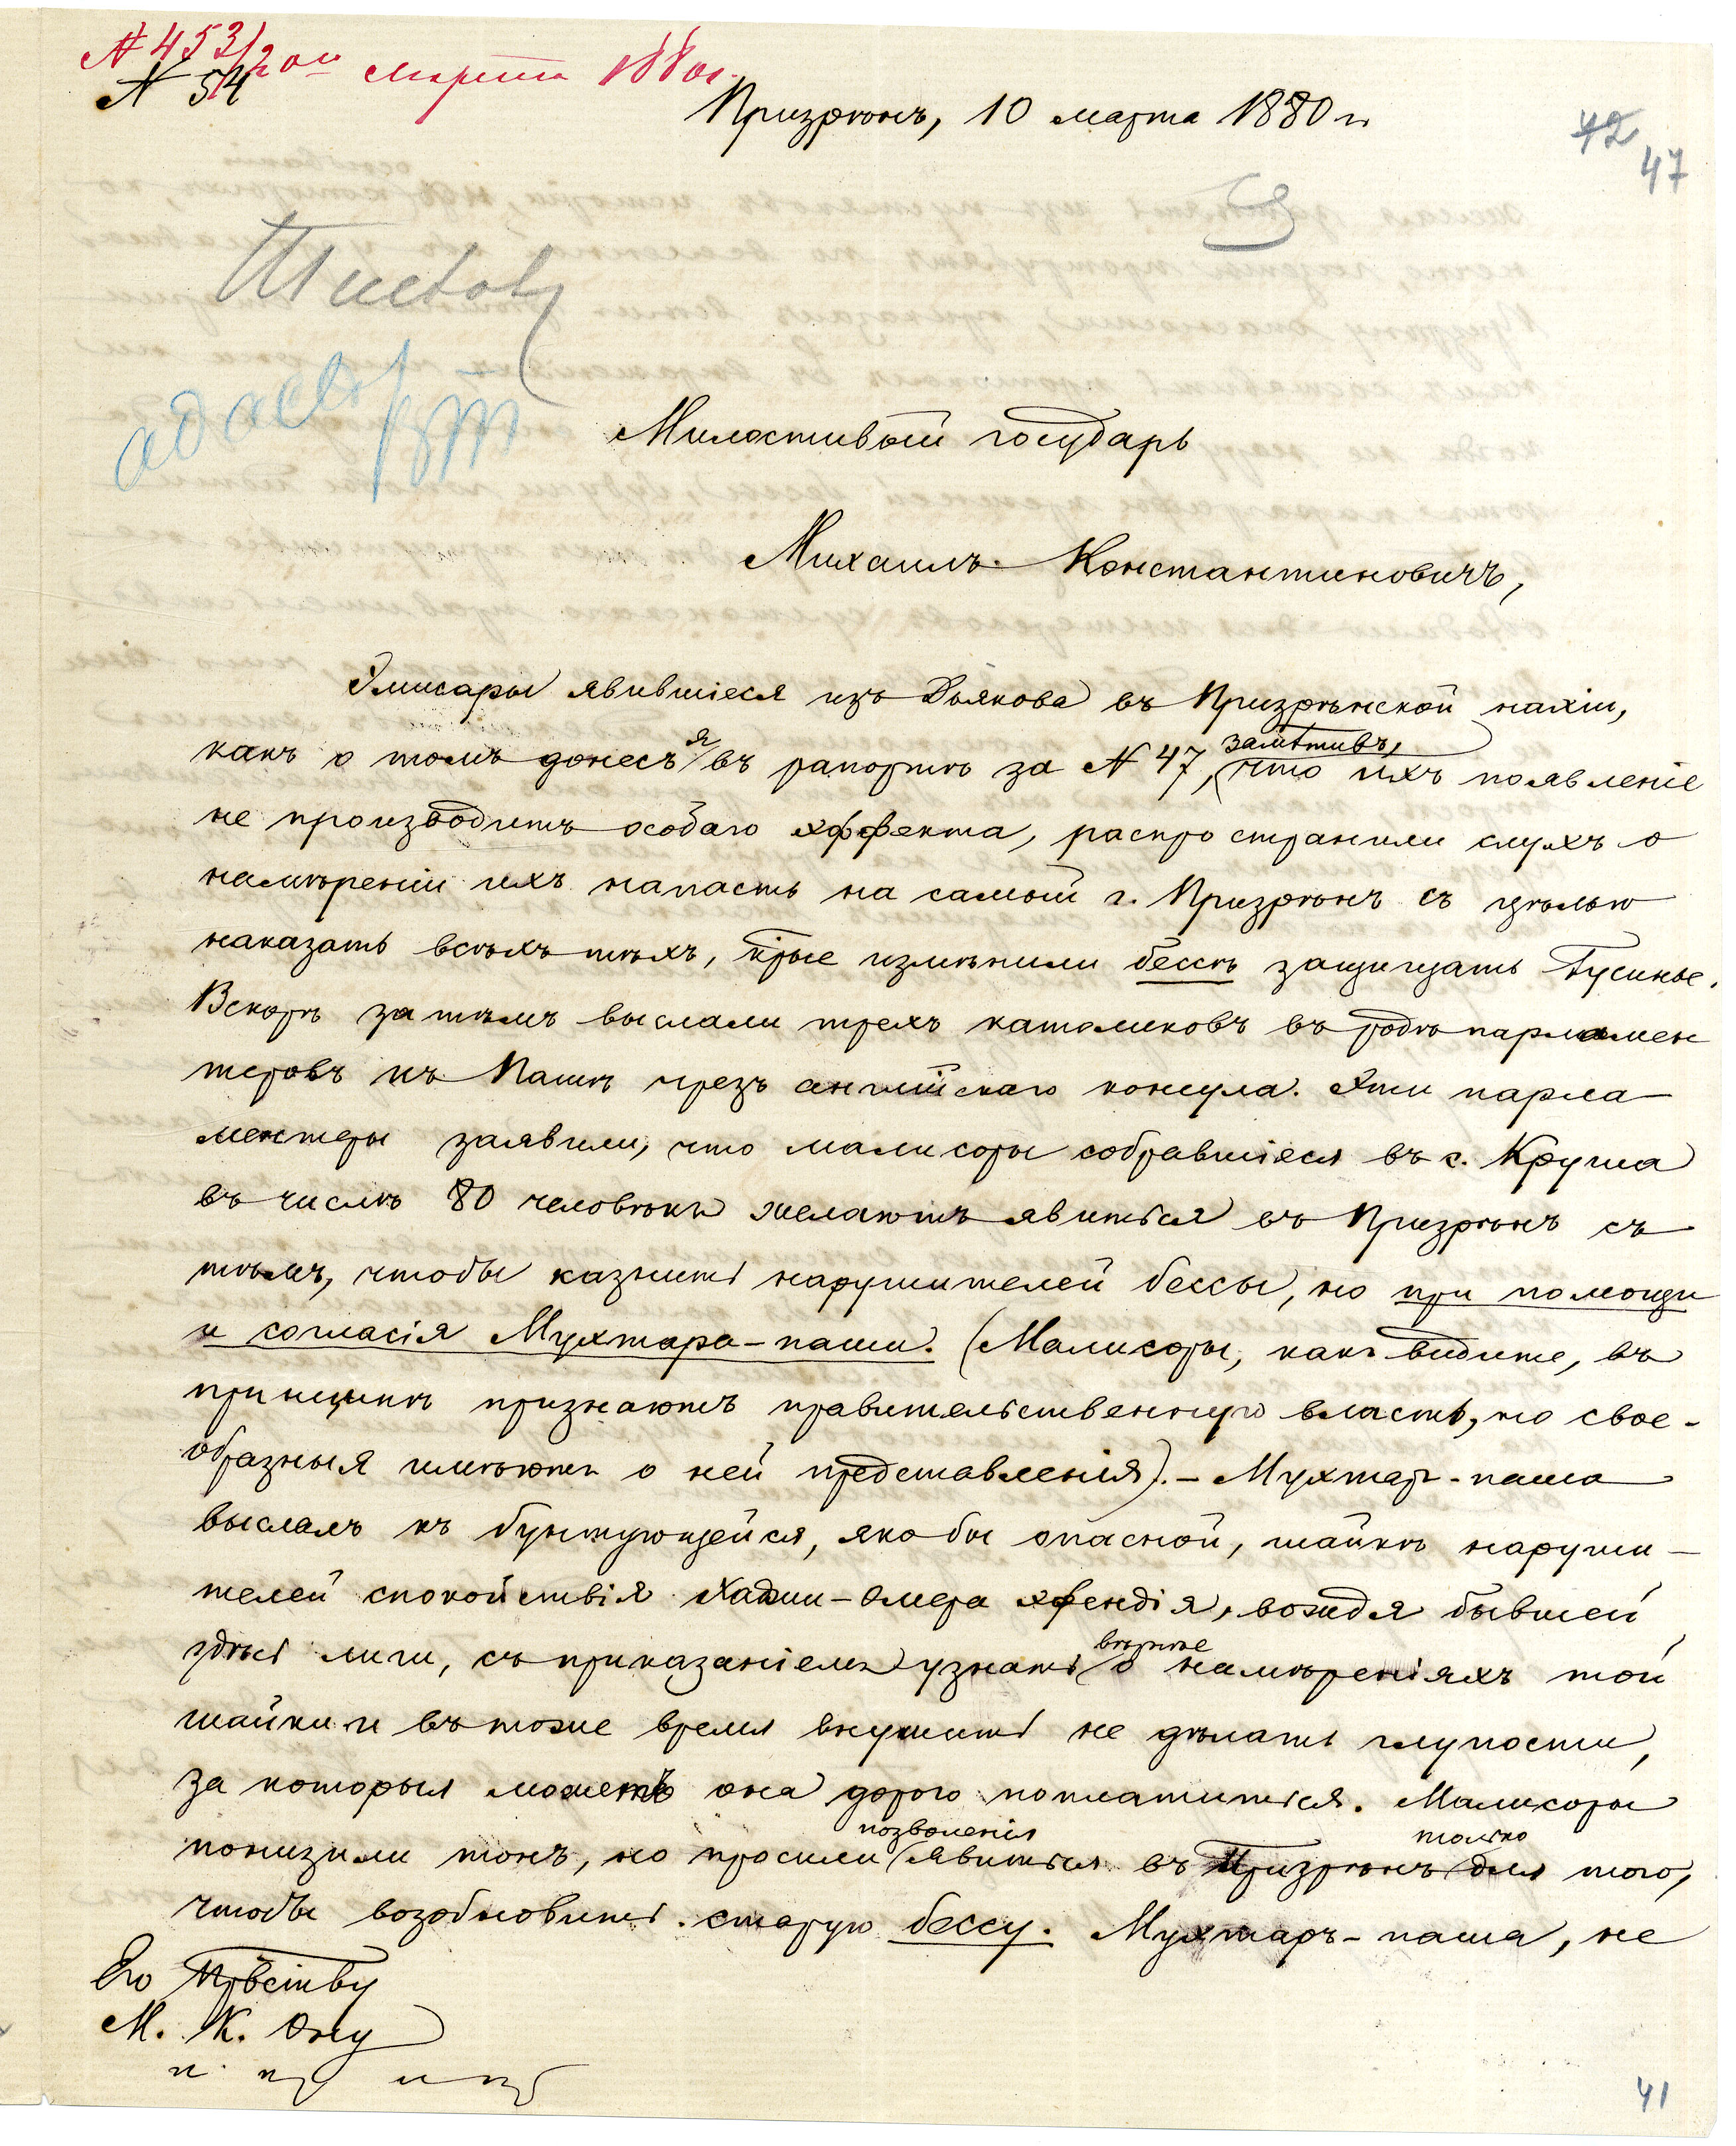 № 453/2 ом марта 1880 г.
№ 54
Призрѣнъ, 10 марта 1880 г.
42
47
Милостивый государь
Михаилъ Константиновичъ,
Эмисары явившіеся изъ Дьякова въ Призрѣнской нахіи,
какъ о томъ донесъ я въ рапортѣ за № 47, замѣтивъ, что ихъ появленіе
не производитъ особаго эффекта, распространили слухъ о
намѣреніи ихъ напасть на самый г. Призрѣнъ съ цѣлью
наказать всѣхъ тѣхъ, к͠трые измѣнили бессѣ защищать Гусинье.
Вскорѣ затѣмъ выслали трехъ католиковъ въ родѣ парламен
теровъ къ Пашѣ чрезъ англійскаго консула. Эти парла-
ментеры заявили, что малисоры собравшіеся въ с. Круша
въ числѣ 80 человѣкъ желаютъ явиться въ Призрѣнъ съ
тѣмъ, чтобы казнить нарушителей бессы, но при помощи
и согласія Мухтара-паши. (Малисоры, какъ видите, въ
принципѣ признаютъ правительственную власть, но свое-
образныя имѣютъ о ней представленія). - Мухтаръ-паша
выслалъ къ бунтующейся, якобы опасной, шайкѣ наруши-
телей спокойствія Хаджи-Омера эфендія, вождя бывшей
здѣсь лиги, съ приказаніемъ узнать вѣрнѣе о намѣреніяхъ той
шайки и въ тоже время внушить не дѣлать глупости,
за которыя можетъ она дорого поплатиться. Малисоры
понизили тонъ, но просили позволенія явиться въ Призрѣнъ только для того,
чтобъ возобновить старую бессу. Мухтаръ-паша, не
Его Пр͠вству
М. К. Ону
и пр и пр
41